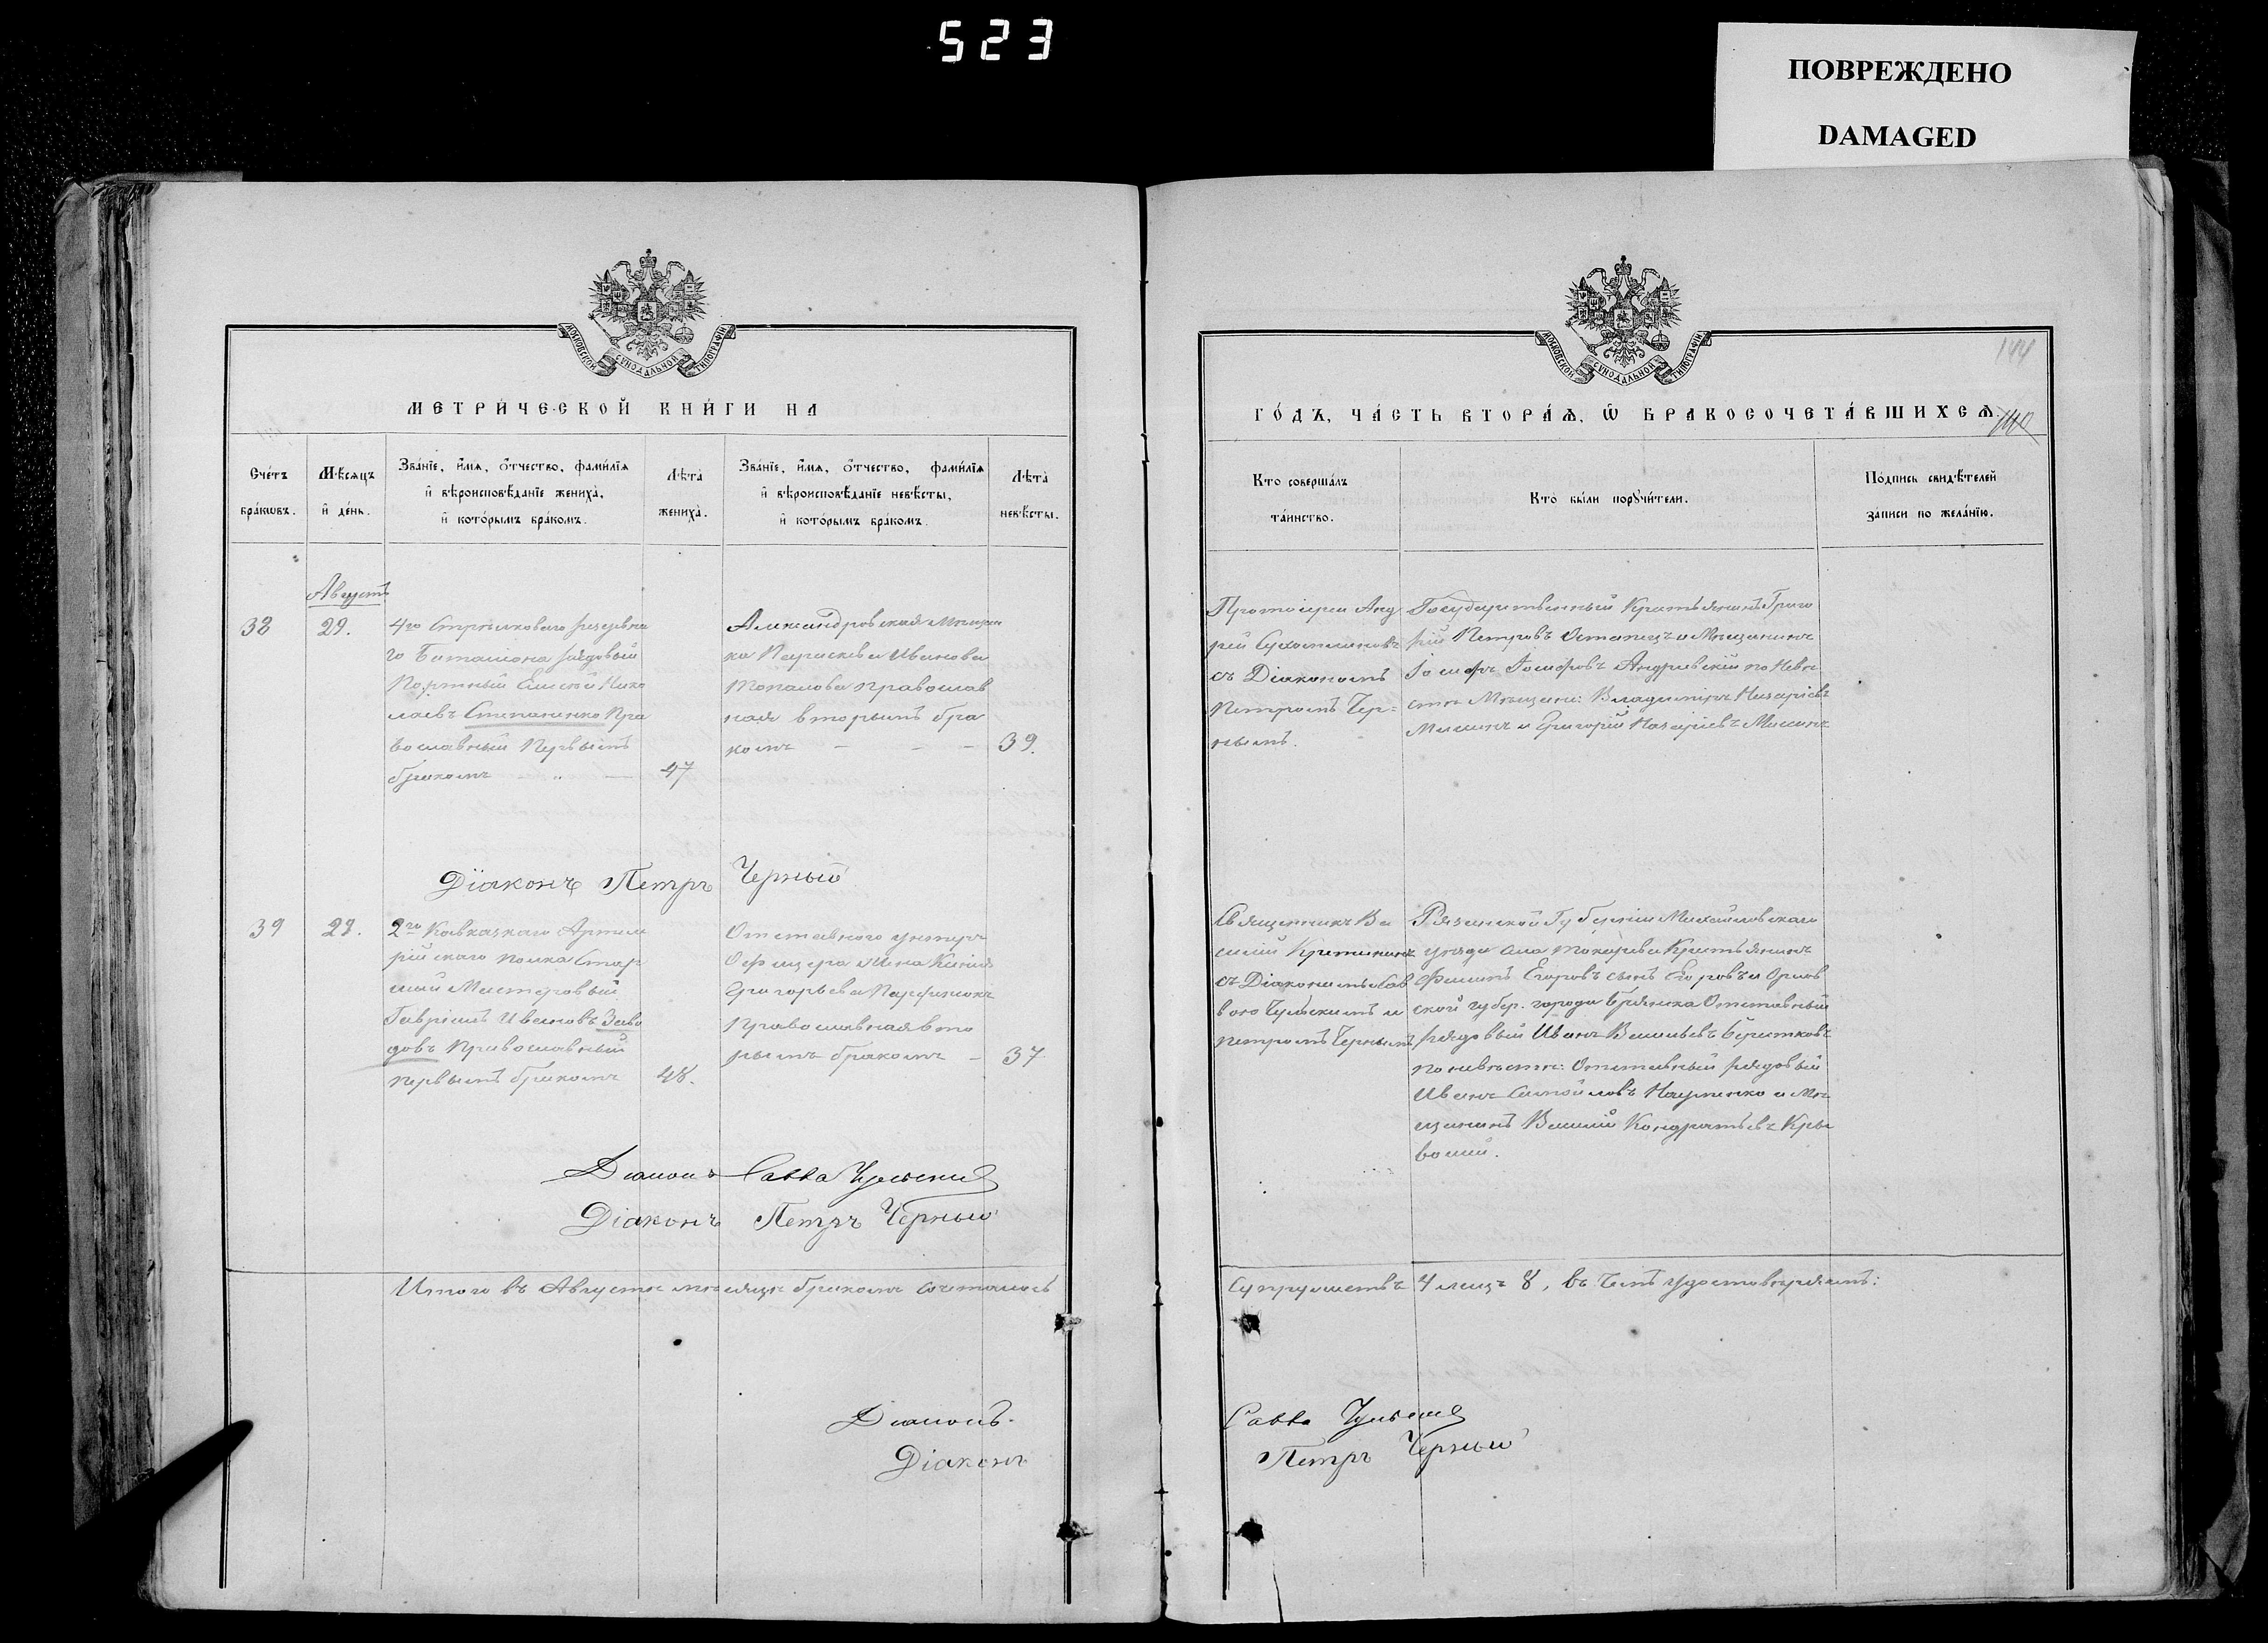 523
ПОВРЕЖДЕНО
DAMAGED
МОСКОВСКОЙ СѴНОДАЛЬНОЙ ТИПОГРАФІИ
МЕТРИ́ЧЕСКОЙ КНИ́ГИ НА
Сче́тъ бра́кωвъ.
Мѣ́сяцъ и҆ де́нь.
Зва́нїе, и҆́мѧ, ѻ҆́тчество, фами́лїѧ
и҆ вѣроисповѣ́данїе жениха̀,
и҆ кото́рымъ бра́комъ.
Лѣта̀ жениха̀.
Зва́нїе, и҆́мѧ, ѻ҆́тчество, фами́лїѧ
и҆ вѣроисповѣ́данїе невѣ́сты,
и҆ кото́рымъ бра́комъ.
Лѣта̀ невѣ́сты.
Августъ
38
29.
4го Стрѣлковаго резервна
го Баталіона рядовый
Портный Елисей Нико
лаевъ Степаненко Пра
вославный Первымъ
бракомъ
47
Александровская Мѣщан
ка Параскева Иванова
Топалова православ
ная вторымъ бра
комъ
39.
Діаконъ Петръ Черный
39
29.
2го Кавказкаго Артиле
рійскаго полка Стар
шій Мастеровый
Гавріилъ Ивановъ Заво
довъ Православный
первымъ бракомъ
48.
Отставного унтеръ
Офицера жена
Григорьева
Православная вто
рымъ бракомъ
37
Діаконъ Савва Чульскій
Діаконъ Петръ Черный
Итого въ Августѣ мѣсяцѣ бракомъ сочеталось
Діаконъ
Діаконъ
МОСКОВСКОЙ СѴНОДАЛЬНОЙ ТИПОГРАФІИ
144
ГО́ДЪ, ЧА́СТЬ ВТОРА́Ѧ, Ѿ БРАКОСОЧЕТА́ВШИХСѦ.
140
Кто̀ соверша́лъ та́инство.
Кто̀ бы́ли порꙋчи́тели.
По́дпись свидѣ́телей
за́писи по жела́нїю.
Протоіерей Анд
рей
съ Діакономъ
Петромъ Чер=
нымъ.
Государственный Крестьянинъ Григо
рій Петровъ Остапецъ и Мѣщанинъ
Іосифъ Іосифовъ Андріевскій по Невѣ
стѣ Мѣщане: Владиміръ Назарьевъ
Мишинъ и Григорій Назарьевъ Мишинъ
Священникъ Ва
силій
съ Діаконами Сав
вою Чульскимъ и
петромъ Чернымъ
Рязанской Губерніи Михайловскаго
уѣзда села Токарева Крестьянинъ
Филипъ Егоровъ сынъ Егоровъ и Орлов
ской губер. города Брянска Отставный
рядовый Иванъ Васильевъ
по невѣстѣ: Отставный рядовый
Иванъ Самойловъ Науменко и Мѣ
щанинъ Василій Кондратьевъ Кры

Супружествъ 4 лицъ 8, въ чемъ удостовѣряемъ:
Савва Чульскій
Петръ Черный